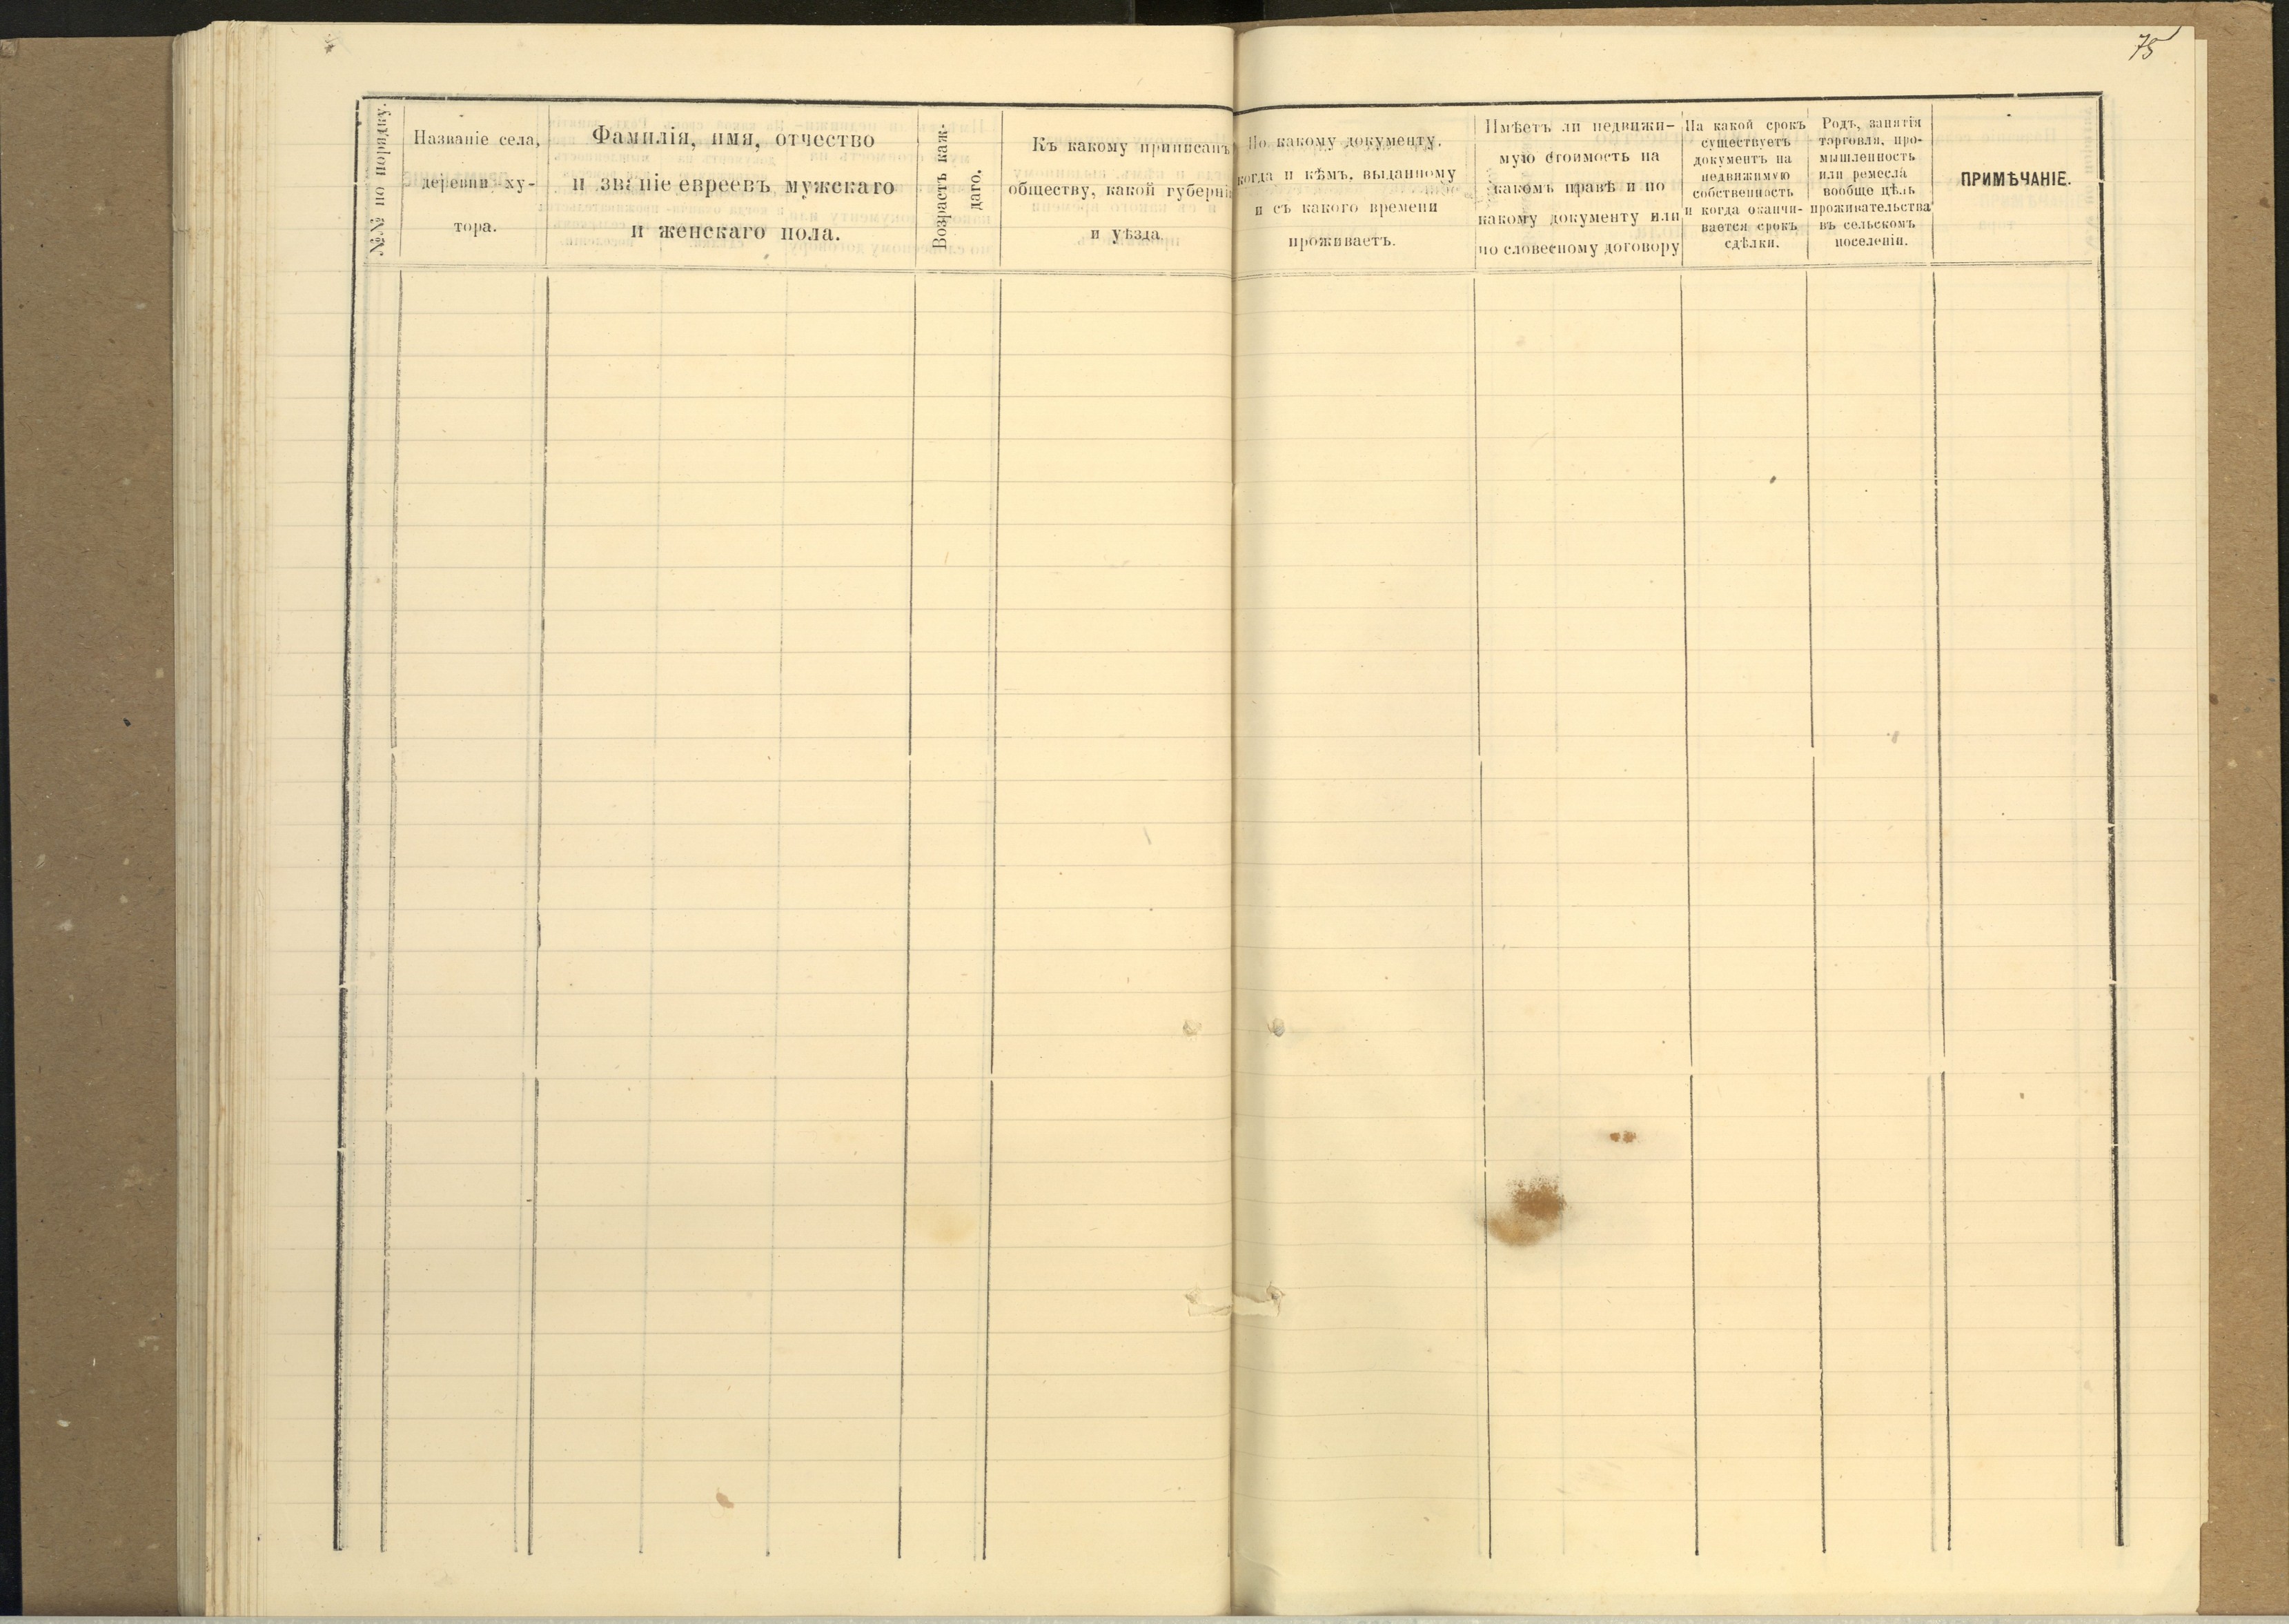 75
№№ по порядку.
Названіе села,
деревни ху-
тора.
Фамилія, имя, отчество
и званіе евреевъ мужскаго
и женскаго пола.
Возрастъ каж-
даго.
Къ какому приписанъ
обществу, какой губерніи
и уѣзда
По какому документу.
когда и кѣмъ, выданному
и съ какого времени
проживаетъ.
Имѣетъ ли недвижи-
мую стоимость на
какомъ правѣ и по
какому документу или
по словесному договору
На какой срокъ
существуетъ
документъ на
недвижимую
собственность
и когда оканчи-
вается срокъ
сдѣлки.
Родъ, занятія
торговля, про-
мышленность
или ремесла
вообще цѣль
проживательства
въ сельскомъ
поселеніи.
ПРИМѢЧАНІЕ.